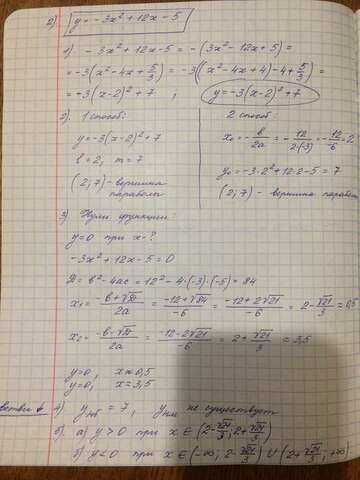 2) y = -3x² + 12x - 5
1) -3x² + 12x - 5 = -(3x² - 12x + 5) =
= -3(x² - 4x + 5/3) = -3((x² - 4x + 4) - 4 + 5/3) =
= -3(x-2)² + 7 ; y = -3(x-2)² + 7
2). 1 способ:
y = -3(x-2)² + 7
l = 2, m = 7
(2; 7) - вершина
параболы
2 способ:
x₀ = -b/2a = -12/2·(-3) = -12/-6 = 2
y₀ = -3·2² + 12·2 - 5 = 7
(2; 7) - вершина параболы
3) Нули функции:
y = 0 при x - ?
-3x² + 12x - 5 = 0
D = b² - 4ac = 12² - 4·(-3)·(-5) = 84
x₁ = -b+√D/2a = -12+√84/-6 = -12+2√21/-6 = 2 - √21/3 = 0,5
x₂ = -b-√D/2a = -12-2√21/-6 = 2 + √21/3 = 3,5
y = 0, x ≈ 0,5
y = 0, x = 3,5
4) y нб = 7, y нм не существует
5. а) y > 0 при x ∈ (2 - √21/3; 2 + √21/3)
б) y < 0 при x ∈ (-∞; 2 - √21/3) ∪ (2 + √21/3; +∞)